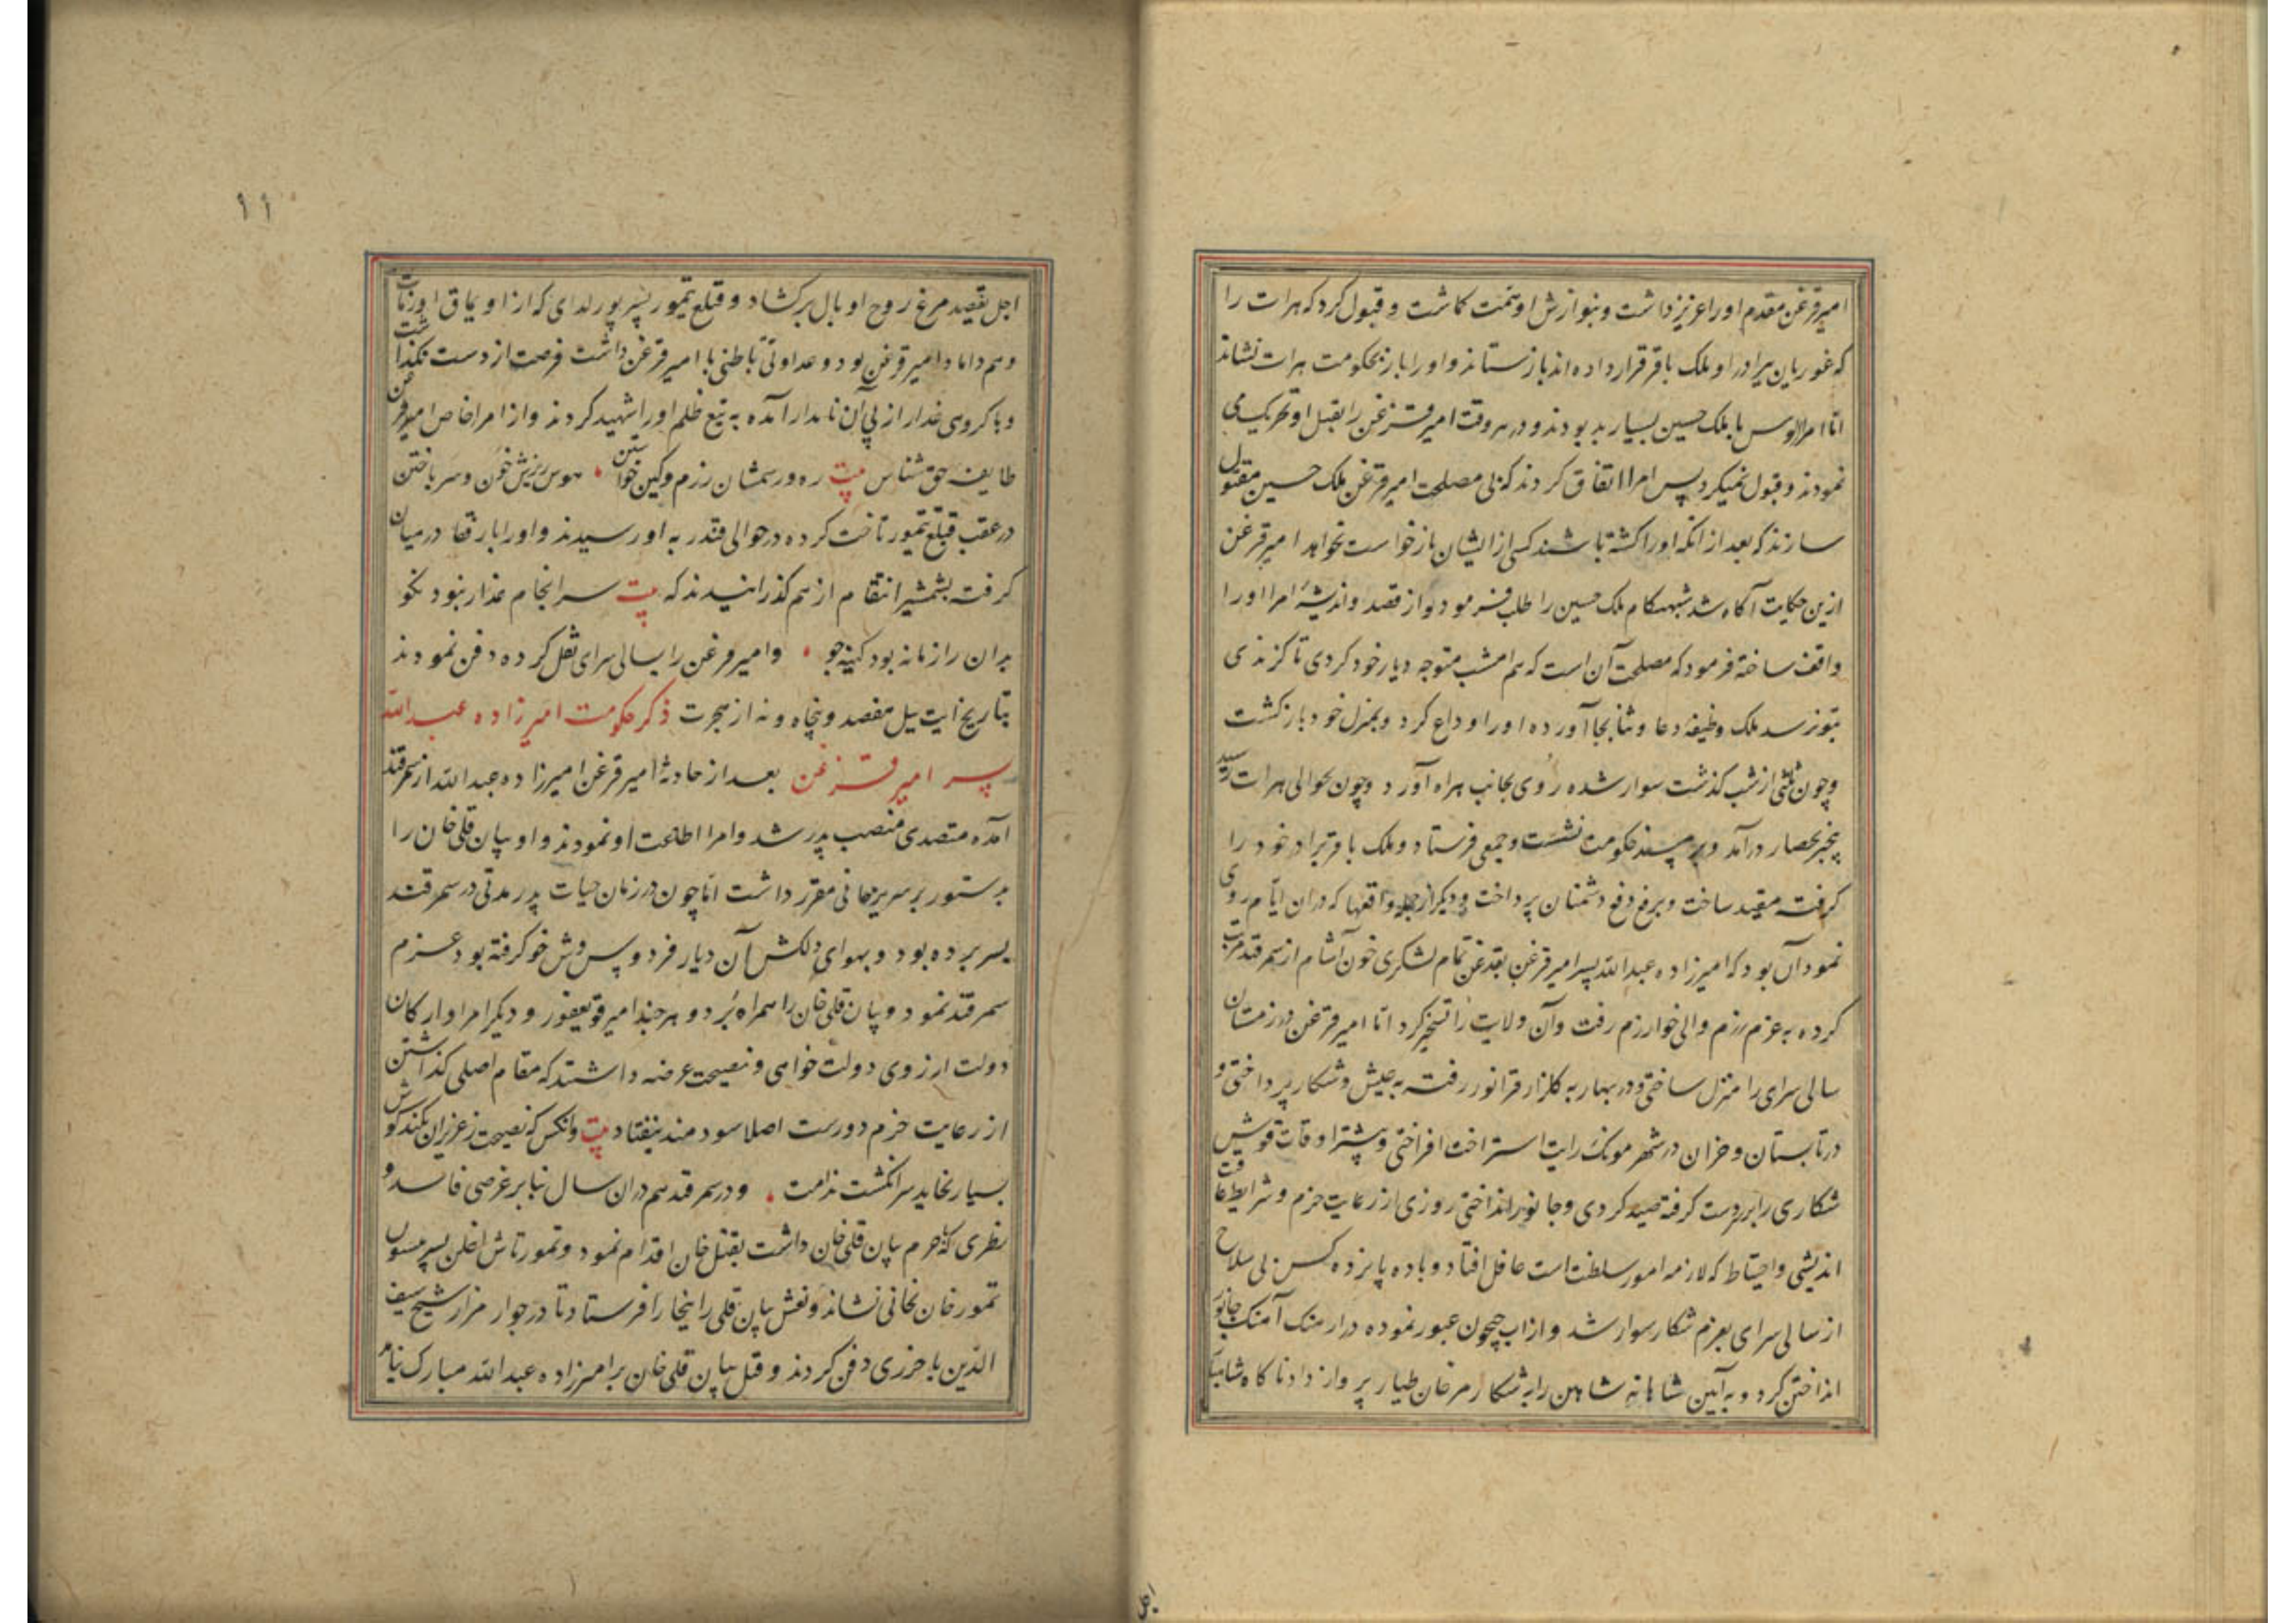 امیر قزغن مقدم او را عزیز داشت و بنوازش او همت کماشت و قبول کرد که هرات را
که غوریان ببرادر او ملک باقر قرار داده اند باز ستاند و او را باز بحکومت هرات نشاند
اما امرا الوس با ملک حسین بسیار بد بودند و در هر وقت امیر قزغن را بقتل او تحریک می
نمودند و قبول نمیکرد پس امرا اتفاق کردند که بی مصلحت امیر قزغن ملک حسین مقتول
سازند که بعد از انکه او را کشته باشند کسی از ایشان باز خواست نخواهد امیر قزغن
ازین حکایت آکاه شد شبهنکام ملک حسین را طلب فرمود و از قصد و اندیشهٔ امرا او را
واقف ساخته فرمود که مصلحت آن است که هم امشب متوجه دیار خود کردی تا کزندی
بتو نرسد ملک وظیفهٔ دعا و ثنا بجا آورده او را وداع کرد و بمنزل خود باز کشت
و چون ثلثی از شب کذشت سوار شده روی بجانب هراه آورد و چون بحوالی هرات رسید
بیخبر بحصار درآمد و بر مسند حکومت نشست و جمعی فرستاد و ملک باقر برادر خود را
کرفته مقید ساخت و برفع دفع دشمنان پرداخت و دیکر از جمله واقعها که دران ایام روی
نمود آن بود که امیرزاده عبدالله پسر امیر قزغن بقدغن تمام لشکری خون آشام از سمرقند مرتب
کرده به عزم رزم والی خوارزم رفت و آن ولایت را تسخیر کرد اما امیر قزغن در زمستان
سالی سرای را منزل ساختی و در بهار به کلزار قرانور رفته به عیش و شکار پرداختی و
در تابستان و خزان در شهر مونک رایت استراحت افراختی و بیشتر اوقات قوش
شکاری را بر دست کرفته صید کردی و جانور انداختی روزی از رعایت حزم و شرایط عاقبت
اندیشی و احتیاط که لازمه امور سلطنت است غافل افتاد و با ده پانزده کس بی سلاح
از سالی سرای بعزم شکار سوار شد و از اب جیحون عبور نموده در ارهنک آهنک جانور
انداختن کرد و به آیین شاهانه شاهین را به شکار مرغان طیار پرواز داد ناکاه شاهین
اجل
۱۱
اجل بقصد مرغ روح او بال برکشاد و قتلغ تیمور پسر پورلدای که از اویماق اورنات
و هم داماد امیر قزغن بود و عداوتی باطنی با امیر قزغن داشت فرصت از دست نکذاشت
و با کروهی غدار از پی آن نامدار آمده به تیغ ظلم او را شهید کردند و از امرا خاص امیر قزغن
طایفه حق شناس بیت ره و رسمشان رزم و کین خواستن هوس ریزش خون و سر باختن
در عقب قتلغ تیمور تاخت کرده در حوالی قندز به او رسیدند و او را با رفقا در میان
کرفته بشمشیر انتقام از هم کذرانیدند که بیت سرانجام غدار نبود نکو
بدان را زمانه بود کینه جو وامیر قزغن را بسالی سرای نقل کرده دفن نمودند
بتاریخ ایت ییل هفصد و پنجاه و نه از هجرت ذکر حکومت امیرزاده عبدالله
پسر امیر قزغن بعد از حادثهٔ امیر قزغن امیرزاده عبدالله از سمرقند
آمده متصدی منصب پدر شد و امرا اطاعت او نمودند و او بیان قلی خان را
بدستور بر سریر خانی مقرر داشت اما چون در زمان حیات پدر مدتی در سمرقند
بسر برده بود و بهوای دلکش آن دیار فردوس وش خو کرفته بود عزم
سمرقند نمود و بیان قلی خان را همراه برد و هر چند امیر قوتیغفور و دیکر امرا و ارکان
دولت از روی دولت خواهی و نصیحت عرضه داشتند که مقام اصلی کذاشتن
از رعایت حزم دورست اصلا سودمند نیفتاد بیت وانکس که نصیحت ز عزیزان نکند کوش
بسیار نخاید سر انکشت ندامت و در سمرقند هم دران سال بنابر غرضی فاسد و
نظری که بحرم بیان قلی خان داشت بقتل خان اقدام نمود و تمورتاش اغلن پسر میسون
تمور خان بخانی نشاند و نعش بیان قلی را ببخارا فرستاد تا در جوار مزار شیخ سیف
الدین باخرزی دفن کردند و قتل بیان قلی خان بر امیرزاده عبدالله مبارک نیامد